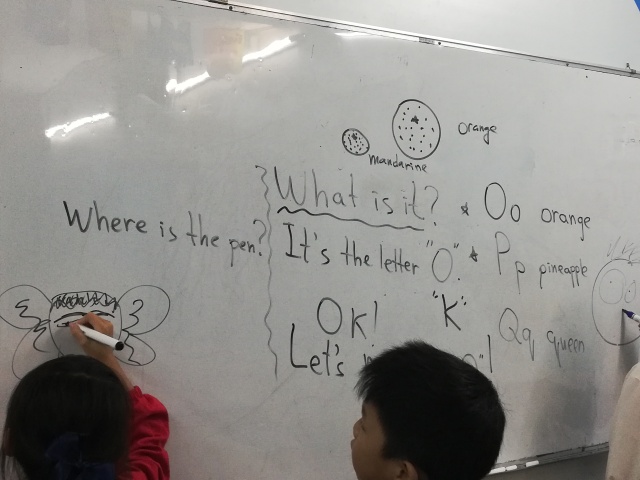 orange
mandarine
Where is the pen?
What is it? * Oo orange
It's the letter "O". * Pp pineapple
OK! "K" Qq queen
Let's